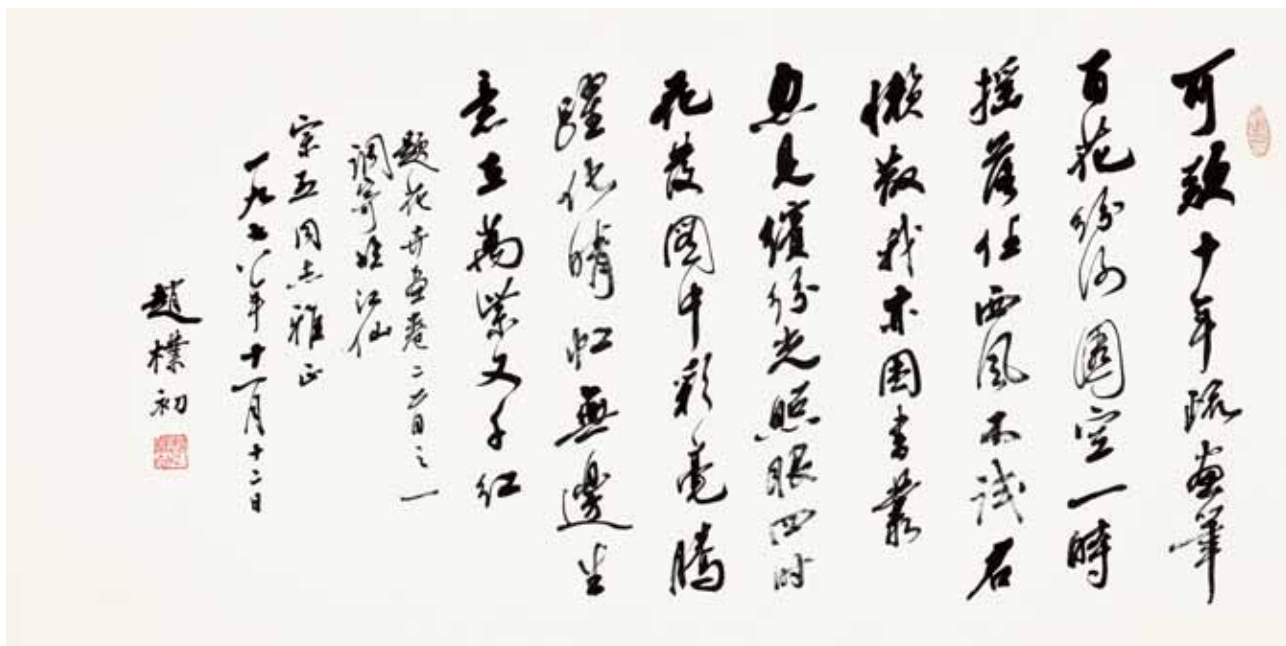 可歎十年疏畫筆
百花紛謝園空一時
搖落任西風不識君
懶散我亦困書叢
忽見繽紛光照眼四时
花發圖中彩毫騰
躍化晴虹無邊生
意在萬紫又千红
題花卉畫卷二首之一
調寄臨江仙
宗五同志雅正
一九七八年十一月十二日
趙樸初